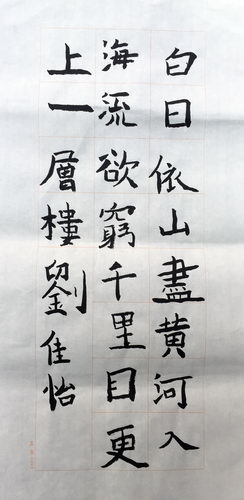 白日依山盡黃河入
海流欲窮千里目更
上一層樓劉佳怡